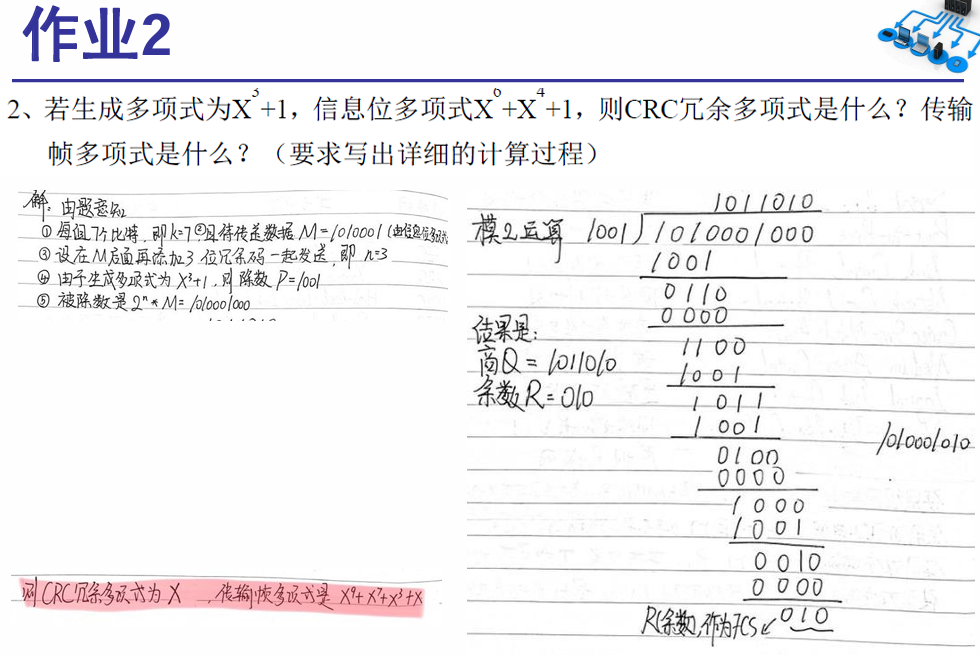 作业2
2、若生成多项式为X³+1，信息位多项式X⁶+X⁴+1，则CRC冗余多项式是什么？传输
帧多项式是什么？（要求写出详细的计算过程）
解：由题意知
① 每组7个比特，即k=7 ②且待传送数据 M=1010001（由信息位多项式
③ 设在M后面再添加3位冗余码一起发送，即 n=3
④ 由于生成多项式为 X³+1，则除数P=1001
⑤ 被除数是2ⁿ*M=1010001000
则CRC冗余多项式为 X ，传输帧多项式是 X⁹+X⁷+X³+X
1011010
模2运算 1001)1010001000
1001
0110
0000
1100
1001
1011
1001
0100
0000
1000
1001
0010
0000
010
结果是：
商Q=1011010
余数R=010
1010001010
R(余数),作为FCS↙